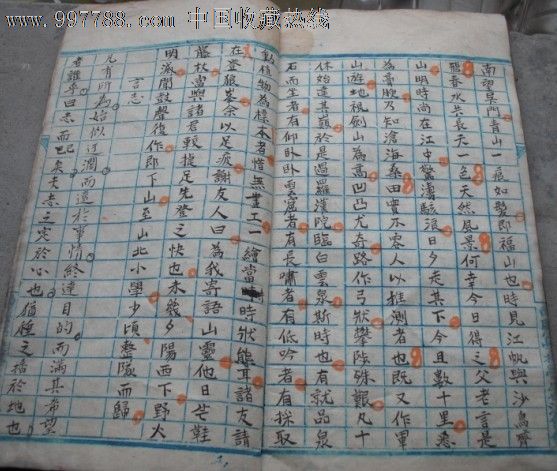 www.997788.com 中国收藏热线
南望吴門青山一痕如髮即福山也時見江帆與沙鳥齊
春水共長天一色天然風景何幸今日得之父老言是
山明時尚在江中驚濤駭浪日夕走其下今且數十里悉
為膏腴乃知滄海桑田實不容人以推測者也既又作軍
山遊地視劍山為高凹凸尤奇路作弓狀攀陟殊艱凡十
休始達其巔於是過羅漢院臨白雲泉斯時也有就品泉
石而坐者有仰卧卧雲窩者有長嘯者有低吟者有採取
動植物為標本者惜無畫工一繪當時狀態耳諸友請
在登狼峯余以足疲謝友人曰為我寄語山靈他日芒鞋
藤杖當與諸君較捷足先登之快也未幾夕陽西下野火
明滅聞鼓聲復作即下山至山北小學少頃整隊而歸
言志
凡有所為始似迂濶而遠於事情終達目的而滿其希望
者誰乎曰志而已矣夫志之寔於心也猶種之播於地也